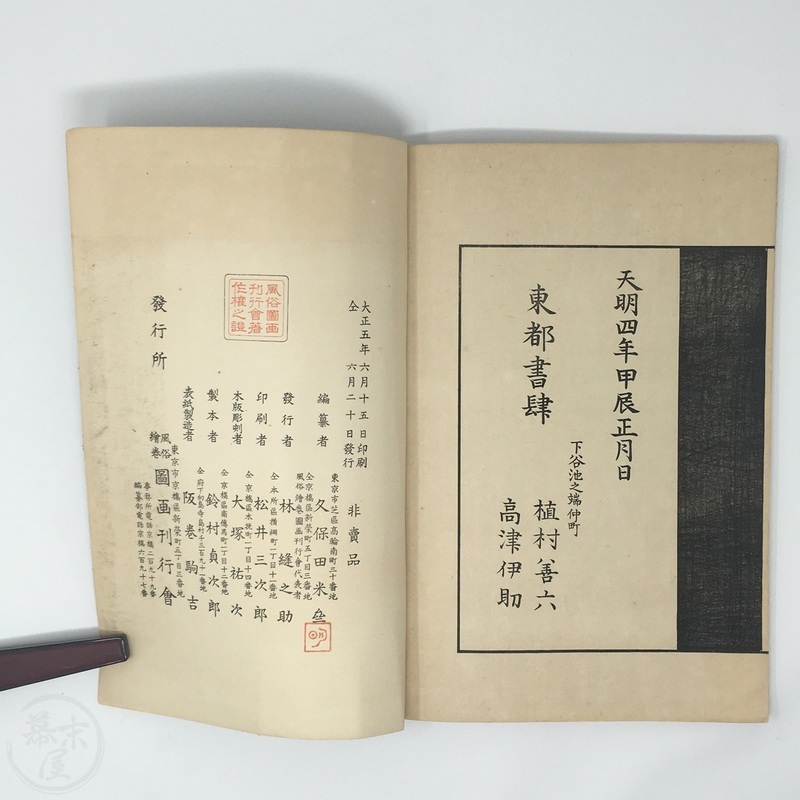 天明四年甲辰正月日
東都書肆
下谷池之端仲町
植村善六
高津伊助
大正五年六月十五日印刷
仝 六月二十日發行
非賣品
風俗圖画
刊行會著
作權之證
東京市芝區高輪南町三十番地
編纂者 久保田米斎
仝京橋區新榮町五丁目三番地
風俗繪卷圖画刊行會代表者
發行者 林縫之助
仝本所區横網町一丁目十一番地
印刷者 松井三次郎
仝京橋區木挽町一丁目十四番地
木版彫刻者 大塚祐次
仝京橋區南傳馬町一丁目十二番地
製本者 鈴村貞次郎
仝府下初島寺島村千三百九十一番地
表紙製造者 阪巻駒吉
東京市京橋區新榮町五丁目三番地
發行所 風俗繪卷圖画刊行會
事務所電話京橋二百九十九番
編纂部電話京橋六百九十七番
幕末屋